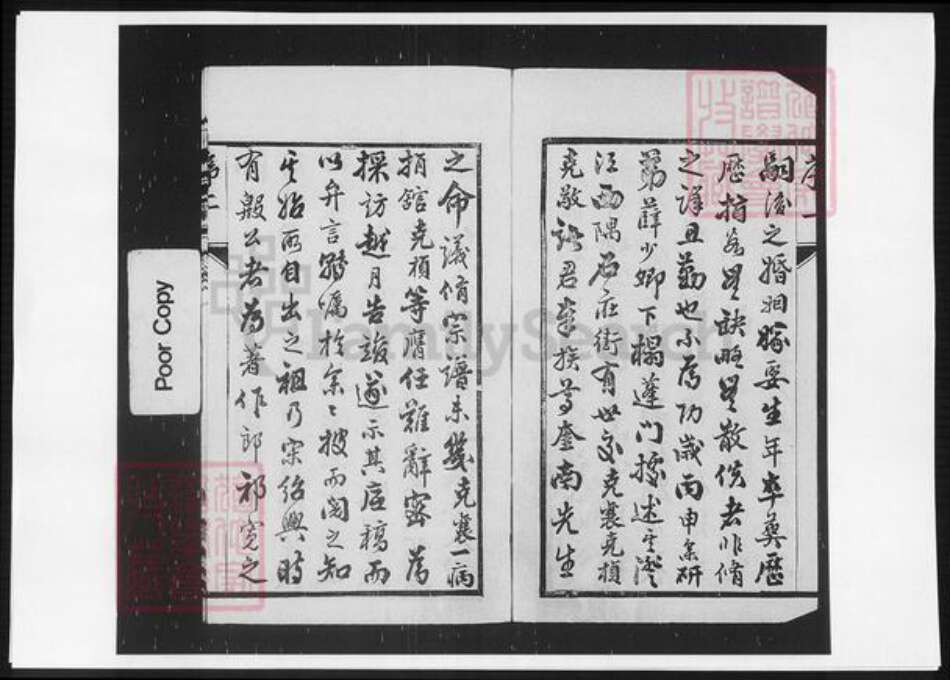 序一
嗣後之婚姻嫁娶生年卒葬歷
歷指為畢缺略畢散佚者非脩
之詳且勤也不為功歲丙申余研
弟薛少卿下榻蓬門據述其澄
江西隅石莊街有世交克襄克楨
克敬諸君奉族尊奎南先生
之命議脩宗譜未幾克襄一病
捐舘克楨等膺任難辭密為
採訪越月告竣遂示其底稿而
以弁言鄭囑於余余披而閱之知
其始所自出之祖乃宋紹興時
有毅公者為著作郎祁寬之
序二
Poor Copy
FamilySearch